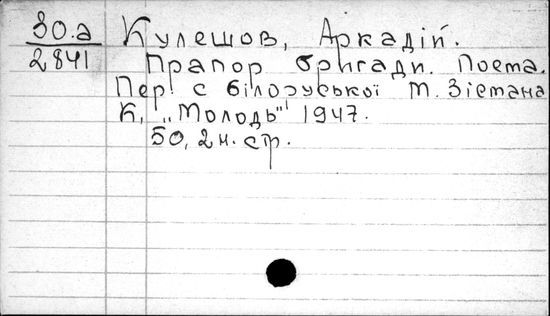 30.а
2841
Кулешов, Аркадій.
Прапор бригади. Поема.
Пер. с білоруської М. Зісмана
К, „Молодь" 1947.
50, 2 н. стр.